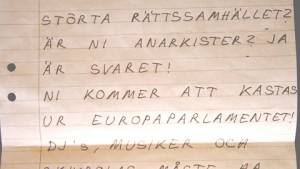 STÖRTA RÄTTSSAMHÄLLET?
ÄR NI ANARKISTER? JA
ÄR SVARET!
NI KOMMER ATT KASTAS
UR EUROPAPARLAMENTET!
DJ's, MUSIKER OCH
MÅSTE HA